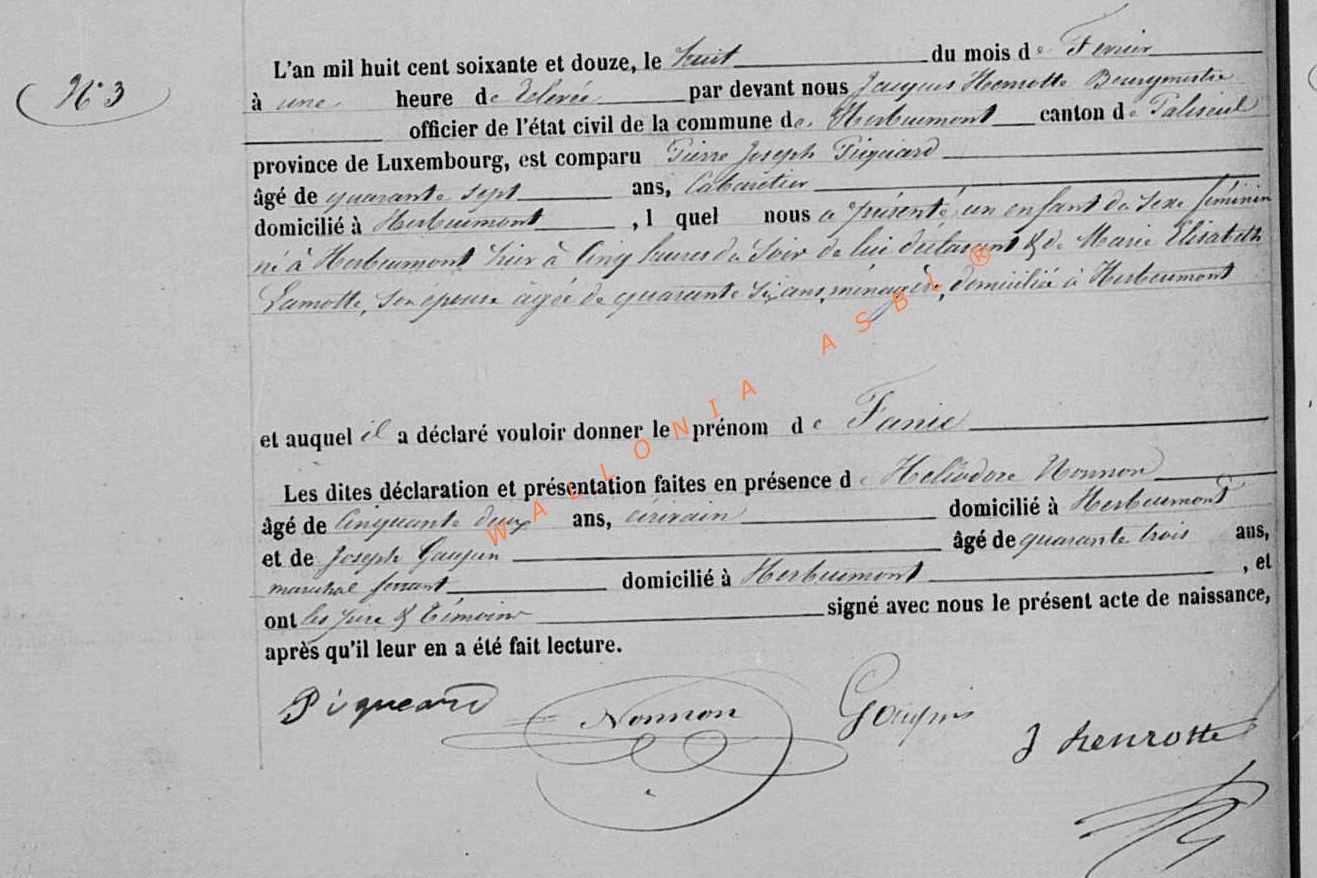 N° 3
L'an mil huit cent soixante et douze, le huit du mois de Fevrier
à une heure de relevée par devant nous Jacques Henrotte Bourgmestre
officier de l'état civil de la commune de Herbeumont canton de Paliseul
province de Luxembourg, est comparu Pierre Joseph Piqueard
âgé de quarante sept ans, Cabaretier
domicilié à Herbeumont , lequel nous a présenté un enfant du sexe féminin
né à Herbeumont hier à Cinq heures du Soir de lui déclarant & de Marie Elisabeth
Lamotte, son épouse âgée de quarante six ans, ménagère, domiciliée à Herbeumont
et auquel il a déclaré vouloir donner le prénom de Fanie
Les dites déclaration et présentation faites en présence de Héliodore Nonnon
âgé de Cinquante deux ans, écrivain domicilié à Herbeumont
et de Joseph âgé de quarante trois ans,
marechal ferrant domicilié à Herbeumont , et
ont les père & témoins signé avec nous le présent acte de naissance,
après qu'il leur en a été fait lecture.
Piqueard Nonnon J henrotte
WALLONIA ASBL ®